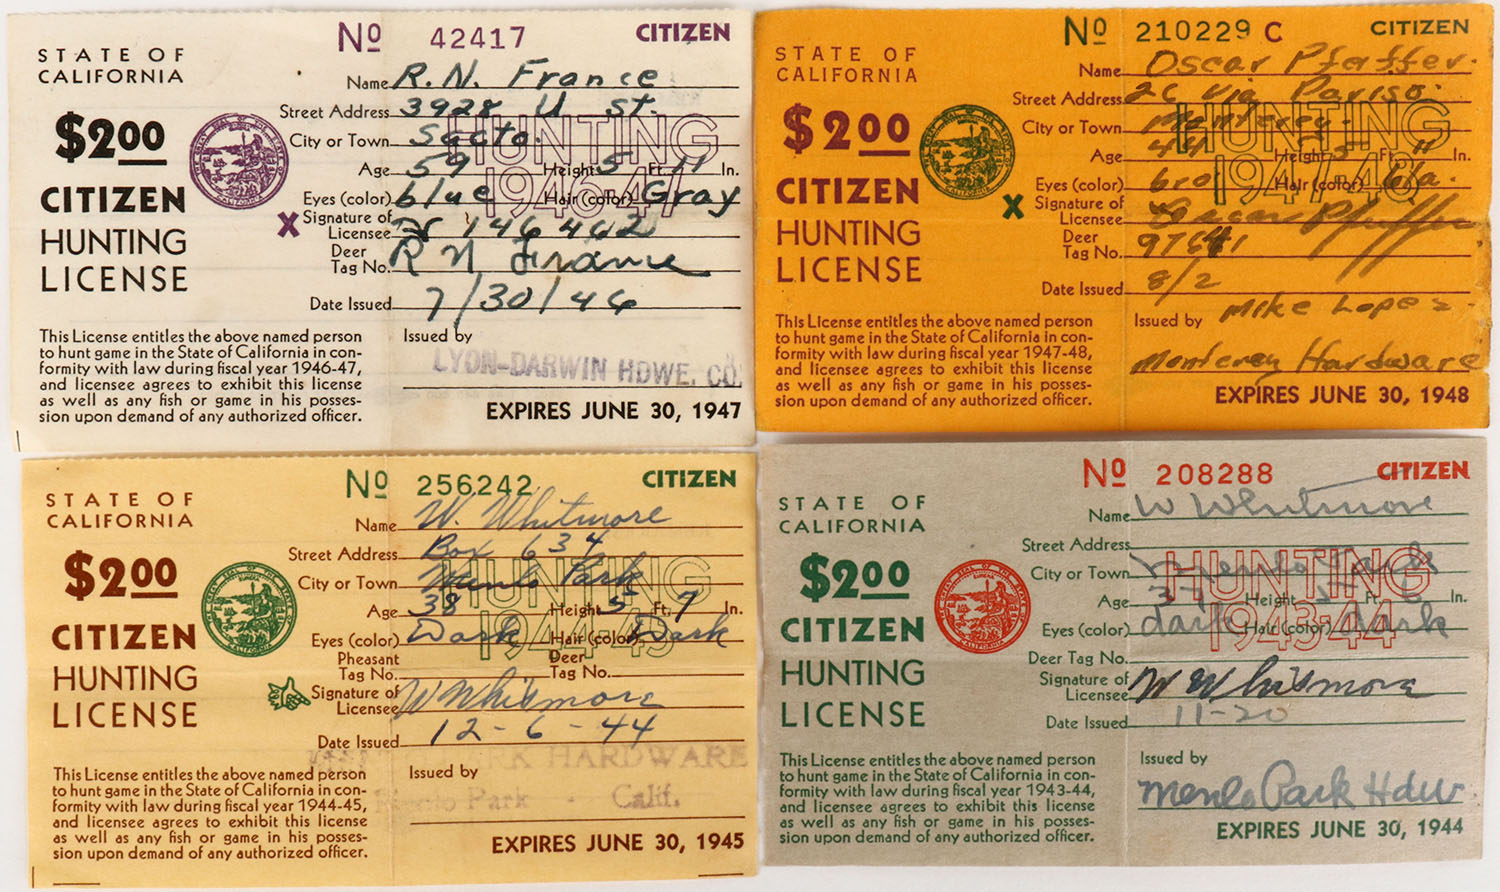 STATE OF
CALIFORNIA
$2.00
CITIZEN
HUNTING
LICENSE
This License entitles the above named person
to hunt game in the State of California in con-
formity with law during fiscal year 1946-47,
and licensee agrees to exhibit this license
as well as any fish or game in his posses-
sion upon demand of any authorized officer.
No 42417 CITIZEN
HUNTING
1946-47
Name R. N. France
Street Address 3928 U St.
City or Town Sacto.
Age 59 Height 5 Ft. 11 In.
Eyes (color) blue Hair (color) Gray
X Signature of
Licensee 146462
Deer
Tag No. R N France
Date Issued 7/30/46
Issued by
LYON-DARWIN HDWE. CO.
EXPIRES JUNE 30, 1947
STATE OF
CALIFORNIA
$2.00
CITIZEN
HUNTING
LICENSE
This License entitles the above named person
to hunt game in the State of California in con-
formity with law during fiscal year 1947-48,
and licensee agrees to exhibit this license
as well as any fish or game in his posses-
sion upon demand of any authorized officer.
No 210229 C CITIZEN
HUNTING
1947-48
Name Oscar Pfeffer.
Street Address 26 via Pariso.
City or Town Monterey.
Age 44 Height 5 Ft. 11 In.
Eyes (color) bro Hair (color)
X Signature of
Licensee Oscar Pfeffer
Deer
Tag No. 97641
Date Issued 8/2
Issued by Mike Lopez.
Monterey Hardware
EXPIRES JUNE 30, 1948
STATE OF
CALIFORNIA
$2.00
CITIZEN
HUNTING
LICENSE
This License entitles the above named person
to hunt game in the State of California in con-
formity with law during fiscal year 1944-45,
and licensee agrees to exhibit this license
as well as any fish or game in his posses-
sion upon demand of any authorized officer.
No 256242 CITIZEN
HUNTING
1944-45
Name W. Whitmore
Street Address Box 634
City or Town Menlo Park
Age 38 Height 5 Ft. 7 In.
Eyes (color) Dark Hair (color) Dark
Pheasant
Tag No. Deer
Tag No.
Signature of
Licensee W Whitmore
Date Issued 12-6-44
PARK HARDWARE
Issued by
Menlo Park - Calif.
EXPIRES JUNE 30, 1945
STATE OF
CALIFORNIA
$2.00
CITIZEN
HUNTING
LICENSE
This License entitles the above named person
to hunt game in the State of California in con-
formity with law during fiscal year 1943-44,
and licensee agrees to exhibit this license
as well as any fish or game in his posses-
sion upon demand of any authorized officer.
No 208288 CITIZEN
HUNTING
1943-44
Name W Whitmore
Street Address
City or Town Menlo Park
Age 37 Height 5 Ft. In.
Eyes (color) dark Hair (color) dark
Deer Tag No.
Signature of
Licensee W Whitmore
Date Issued 11-20
Issued by
Menlo Park Hdw
EXPIRES JUNE 30, 1944